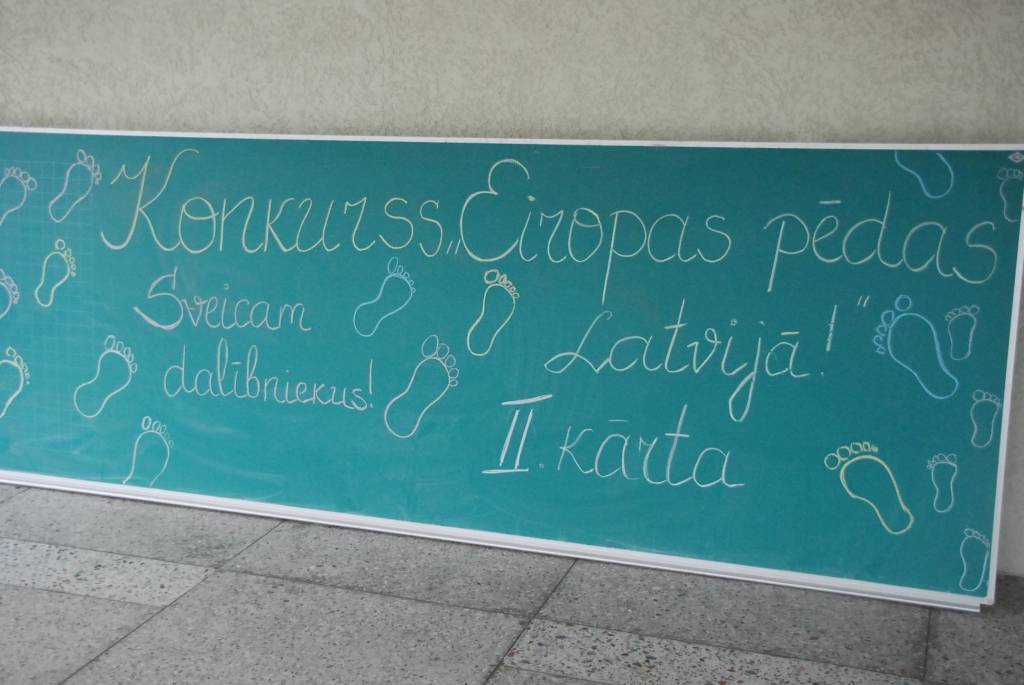 Konkurss „Eiropas pēdas
Latvijā!”
Sveicam
dalībniekus!
II. kārta